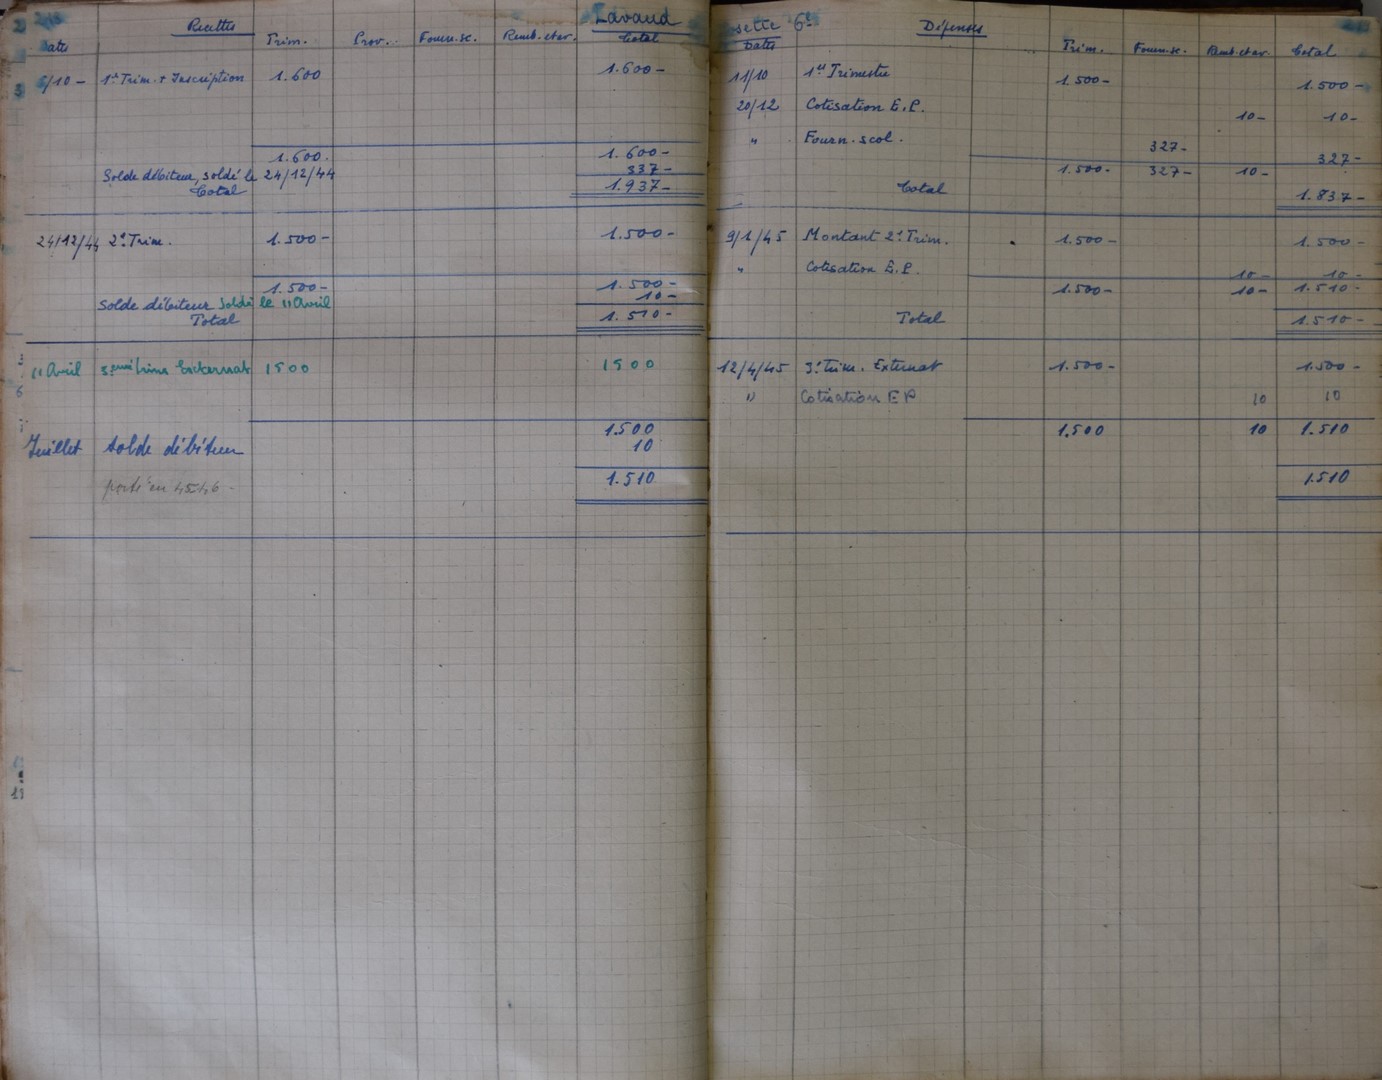 Recettes Lavaud
Dates Trim. Prov. Fourn.sc. Remb. et av. Total
6/10 - 1er Trim. + Inscription 1.600 1.600 -
1.600. 1.600 -
Solde débiteur, soldé le 24/12/44 337 -
Total 1.937 -
24/12/44 2e Trim. 1.500 - 1.500 -
1.500 - 1.500 -
Solde débiteur Soldé le 11 Avril 10 -
Total 1.510 -
11 Avril 3ème trim Externat 1500 1500
1.500
Juillet solde débiteur 10
porté en 45-46 - 1.510
osette 6e Dépenses
Dates Trim. Fourn.sc. Remb. et av. Total
11/10 1er Trimestre 1.500 - 1.500 -
20/12 Cotisation E.P. 10 - 10 -
" Fourn. scol. 327 - 327 -
1.500 - 327 - 10 -
Total 1.837 -
9/1/45 Montant 2e Trim. 1.500 - 1.500 -
" Cotisation E.P. 10 - 10 -
1.500 - 10 - 1.510 -
Total 1.510 -
12/4/45 3e Trim. Externat 1.500 - 1.500 -
" Cotisation EP 10 10
1.500 10 1.510
1.510